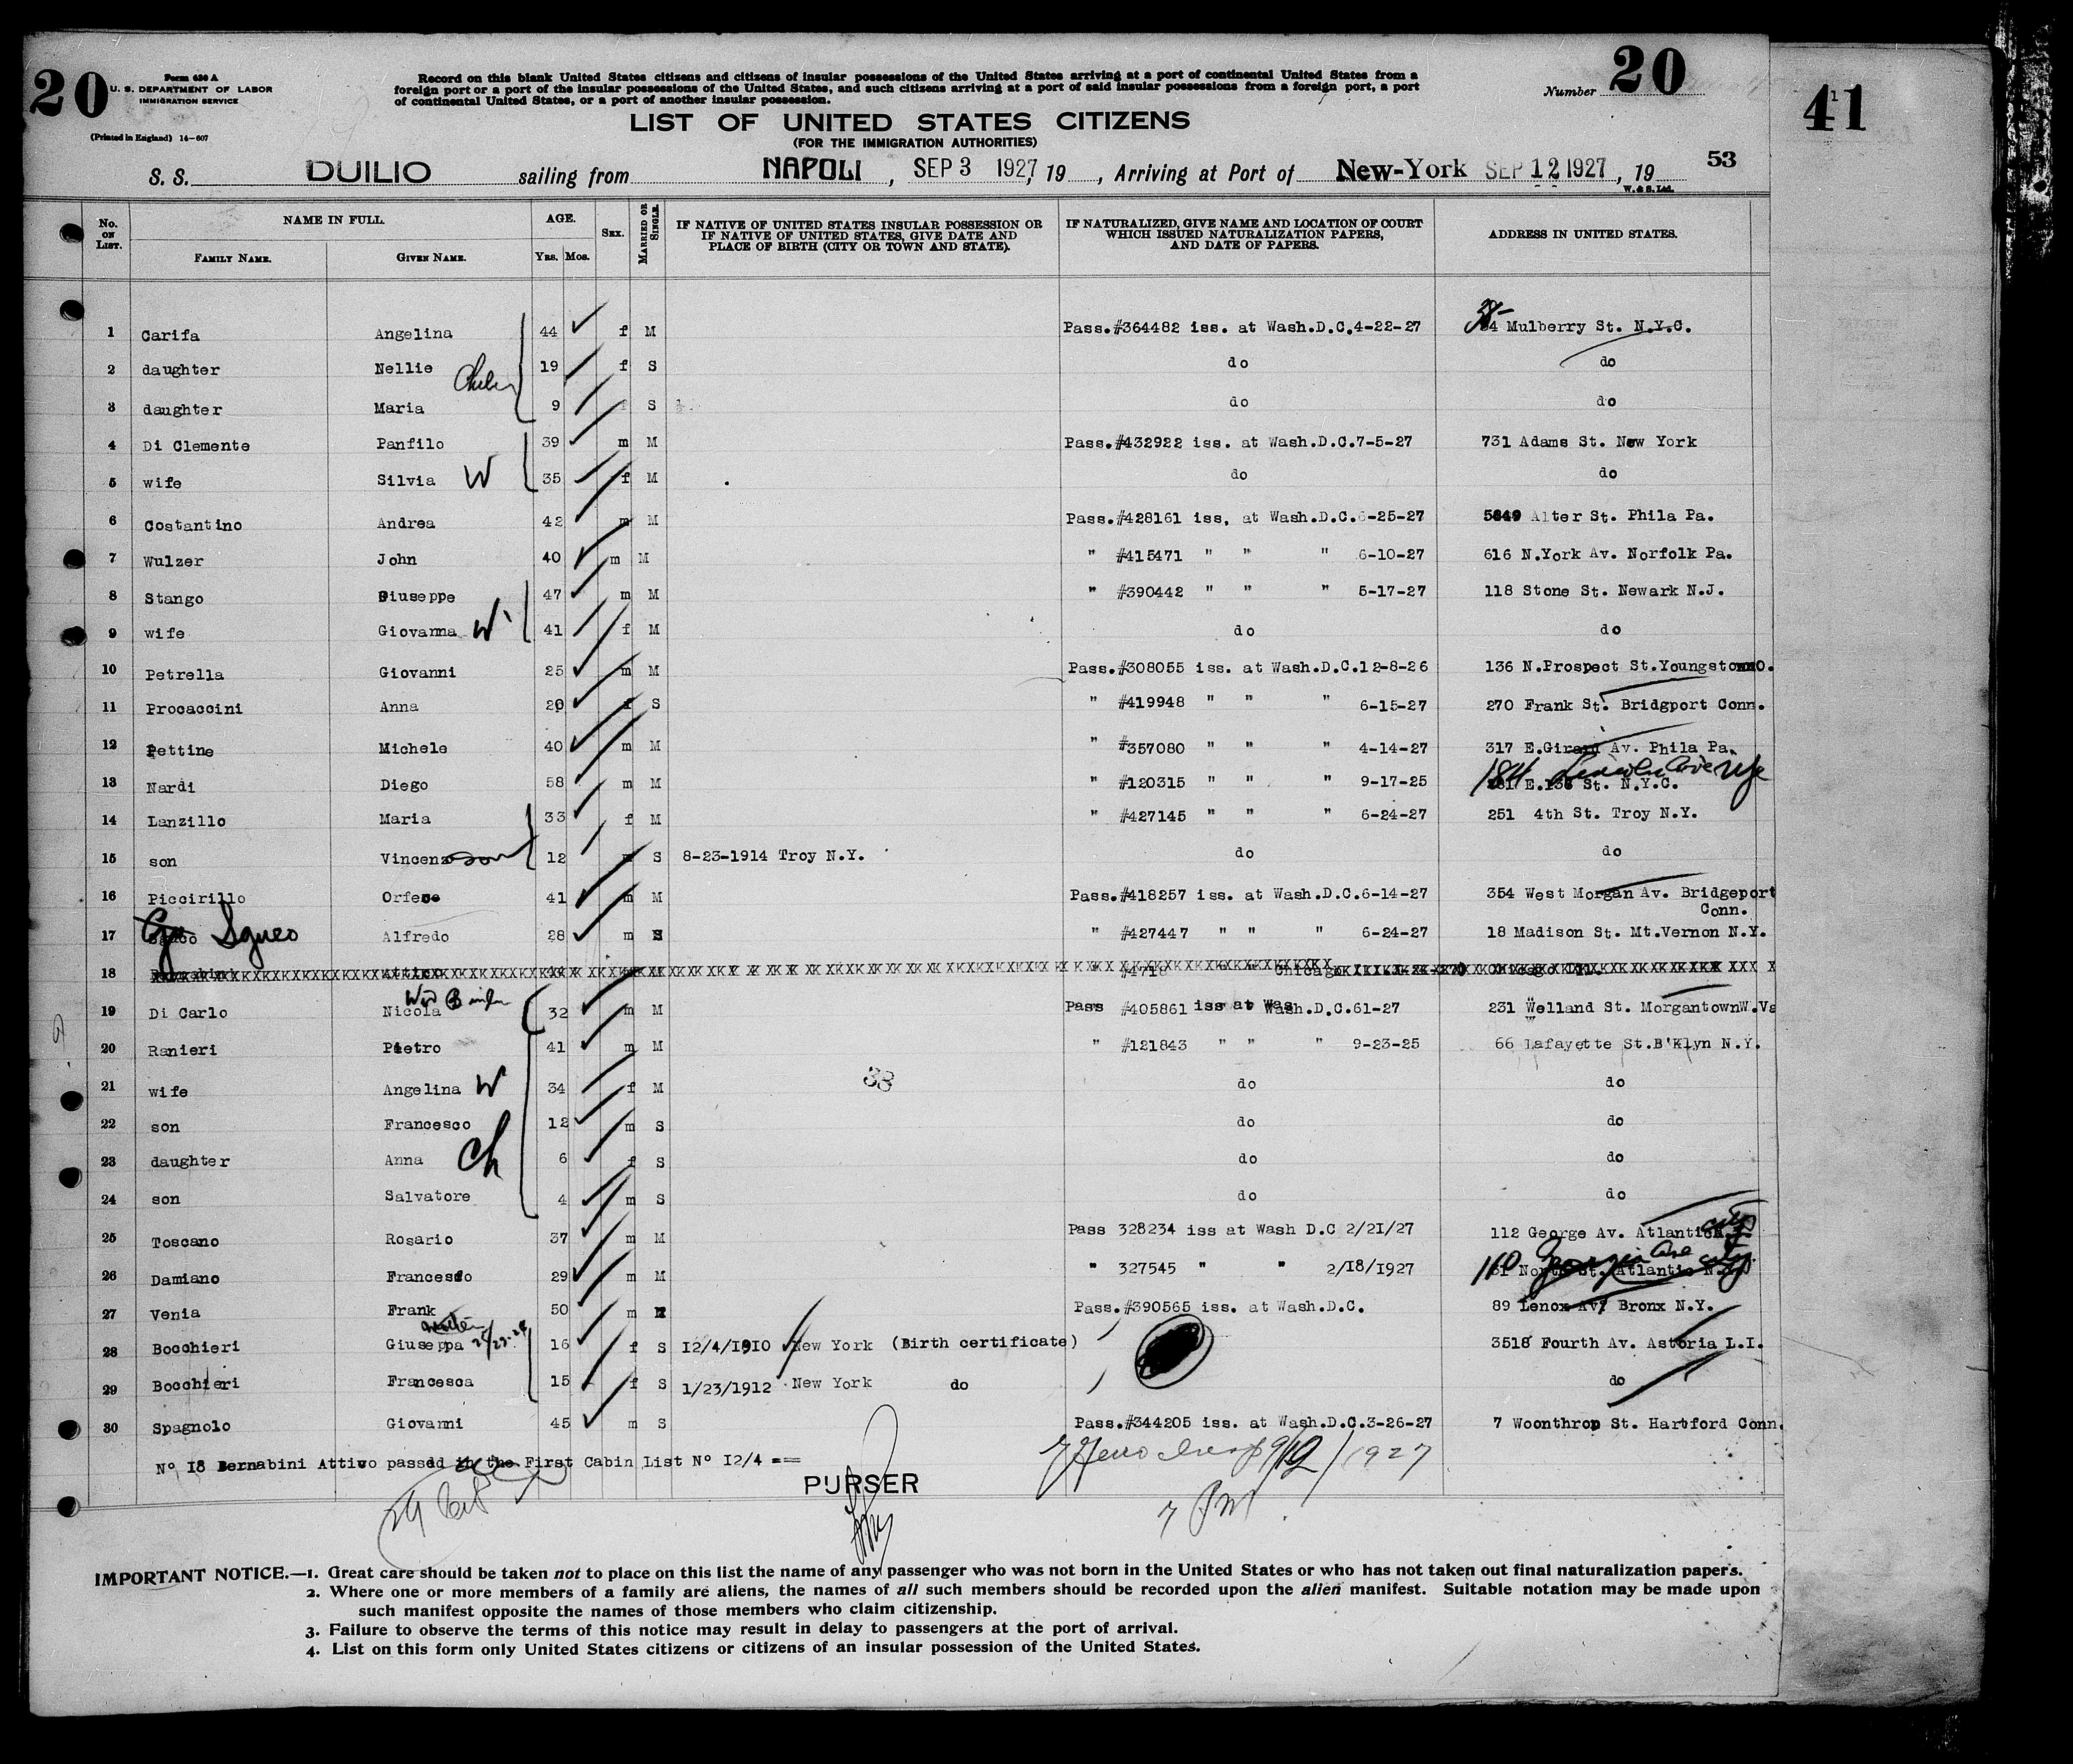 20
Form 630 A
U. S. DEPARTMENT OF LABOR
IMMIGRATION SERVICE
(Printed in England) 14—607
Record on this blank United States citizens and citizens of insular possessions of the United States arriving at a port of continental United States from a
foreign port or a port of the insular possessions of the United States, and such citizens arriving at a port of said insular possessions from a foreign port, a port
of continental United States, or a port of another insular possession.
Number 20
41
LIST OF UNITED STATES CITIZENS
(FOR THE IMMIGRATION AUTHORITIES)
53
S. S. DUILIO sailing from NAPOLI, SEP 3 1927, 19 , Arriving at Port of New-York SEP 12 1927, 19
W. & S. Ltd.
No. ON LIST. NAME IN FULL. FAMILY NAME. GIVEN NAME. AGE. YRS. MOS. SEX. MARRIED OR SINGLE. IF NATIVE OF UNITED STATES INSULAR POSSESSION OR IF NATIVE OF UNITED STATES, GIVE DATE AND PLACE OF BIRTH (CITY OR TOWN AND STATE). IF NATURALIZED, GIVE NAME AND LOCATION OF COURT WHICH ISSUED NATURALIZATION PAPERS, AND DATE OF PAPERS. ADDRESS IN UNITED STATES.
1 Carifa Angelina 44 f M Pass.#364482 iss. at Wash.D.C.4-22-27 Mulberry St. N.Y.C.
2 daughter Nellie 19 f S do do
3 daughter Maria 9 S do do
4 Di Clemente Panfilo 39 m M Pass.#432922 iss. at Wash.D.C.7-5-27 731 Adams St. New York
5 wife Silvia W 35 f M do do
6 Costantino Andrea 42 m M Pass.#428161 iss. at Wash.D.C.6-25-27 5649 Alter St. Phila Pa.
7 Wulzer John 40 m M " #415471 " " " 6-10-27 616 N.York Av. Norfolk Pa.
8 Stango Giuseppe 47 m M " #390442 " " " 5-17-27 118 Stone St. Newark N.J.
9 wife Giovanna W 41 f M do do
10 Petrella Giovanni 25 m M Pass.#308055 iss. at Wash.D.C.12-8-26 136 N.Prospect St.Youngstown O.
11 Procaccini Anna 20 f S " #419948 " " " 6-15-27 270 Frank St. Bridgport Conn.
12 Pettine Michele 40 m M " #357080 " " " 4-14-27 317 E.Girard Av. Phila Pa.
13 Nardi Diego 58 m M " #120315 " " " 9-17-25 184 Lincoln Ave NYC E.136 St. N.Y.C.
14 Lanzillo Maria 33 f M " #427145 " " " 6-24-27 251 4th St. Troy N.Y.
15 son Vincenzo son 12 m S 8-23-1914 Troy N.Y. do do
16 Piccirillo Orfeoe 41 m M Pass.#418257 iss. at Wash.D.C.6-14-27 354 West Morgan Av. Bridgeport
Conn.
17 Sgueo Alfredo 28 m S " #427447 " " " 6-24-27 18 Madison St. Mt.Vernon N.Y.
18
19 Di Carlo Nicola 32 m M Pass #405861 iss at Wash.D.C.61-27 231 Welland St. MorgantownW.Va
20 Ranieri Pietro 41 m M " #121843 " " " 9-23-25 66 Lafayette St.B'Klyn N.Y.
21 wife Angelina W 34 f M 38 do do
22 son Francesco 12 m S do do
23 daughter Anna Ch 6 f S do do
24 son Salvatore 4 m S do do
25 Toscano Rosario 37 m M Pass 328234 iss at Wash D.C 2/21/27 112 George Av. Atlantic City
26 Damiano Francesco 29 m M " 327545 " " 2/18/1927 110 Georgia Ave City North St. Atlantic N.J.
27 Venia Frank 50 m M Pass.#390565 iss. at Wash.D.C. 89 Lenox Av. Bronx N.Y.
28 Bocchieri Giuseppa 16 f S 12/4/1910 New York (Birth certificate) 3518 Fourth Av. Astoria L.I.
29 Bocchieri Francesca 15 f S 1/23/1912 New York do do
30 Spagnolo Giovanni 45 m S Pass.#344205 iss. at Wash.D.C.3-26-27 7 Woonthrop St. Hartford Conn.
Nº 18 Bernabini Attivo passed in the First Cabin List Nº 12/4 ==
PURSER
9/12/1927
7 PM
IMPORTANT NOTICE.—1. Great care should be taken not to place on this list the name of any passenger who was not born in the United States or who has not taken out final naturalization papers.
2. Where one or more members of a family are aliens, the names of all such members should be recorded upon the alien manifest. Suitable notation may be made upon
such manifest opposite the names of those members who claim citizenship.
3. Failure to observe the terms of this notice may result in delay to passengers at the port of arrival.
4. List on this form only United States citizens or citizens of an insular possession of the United States.